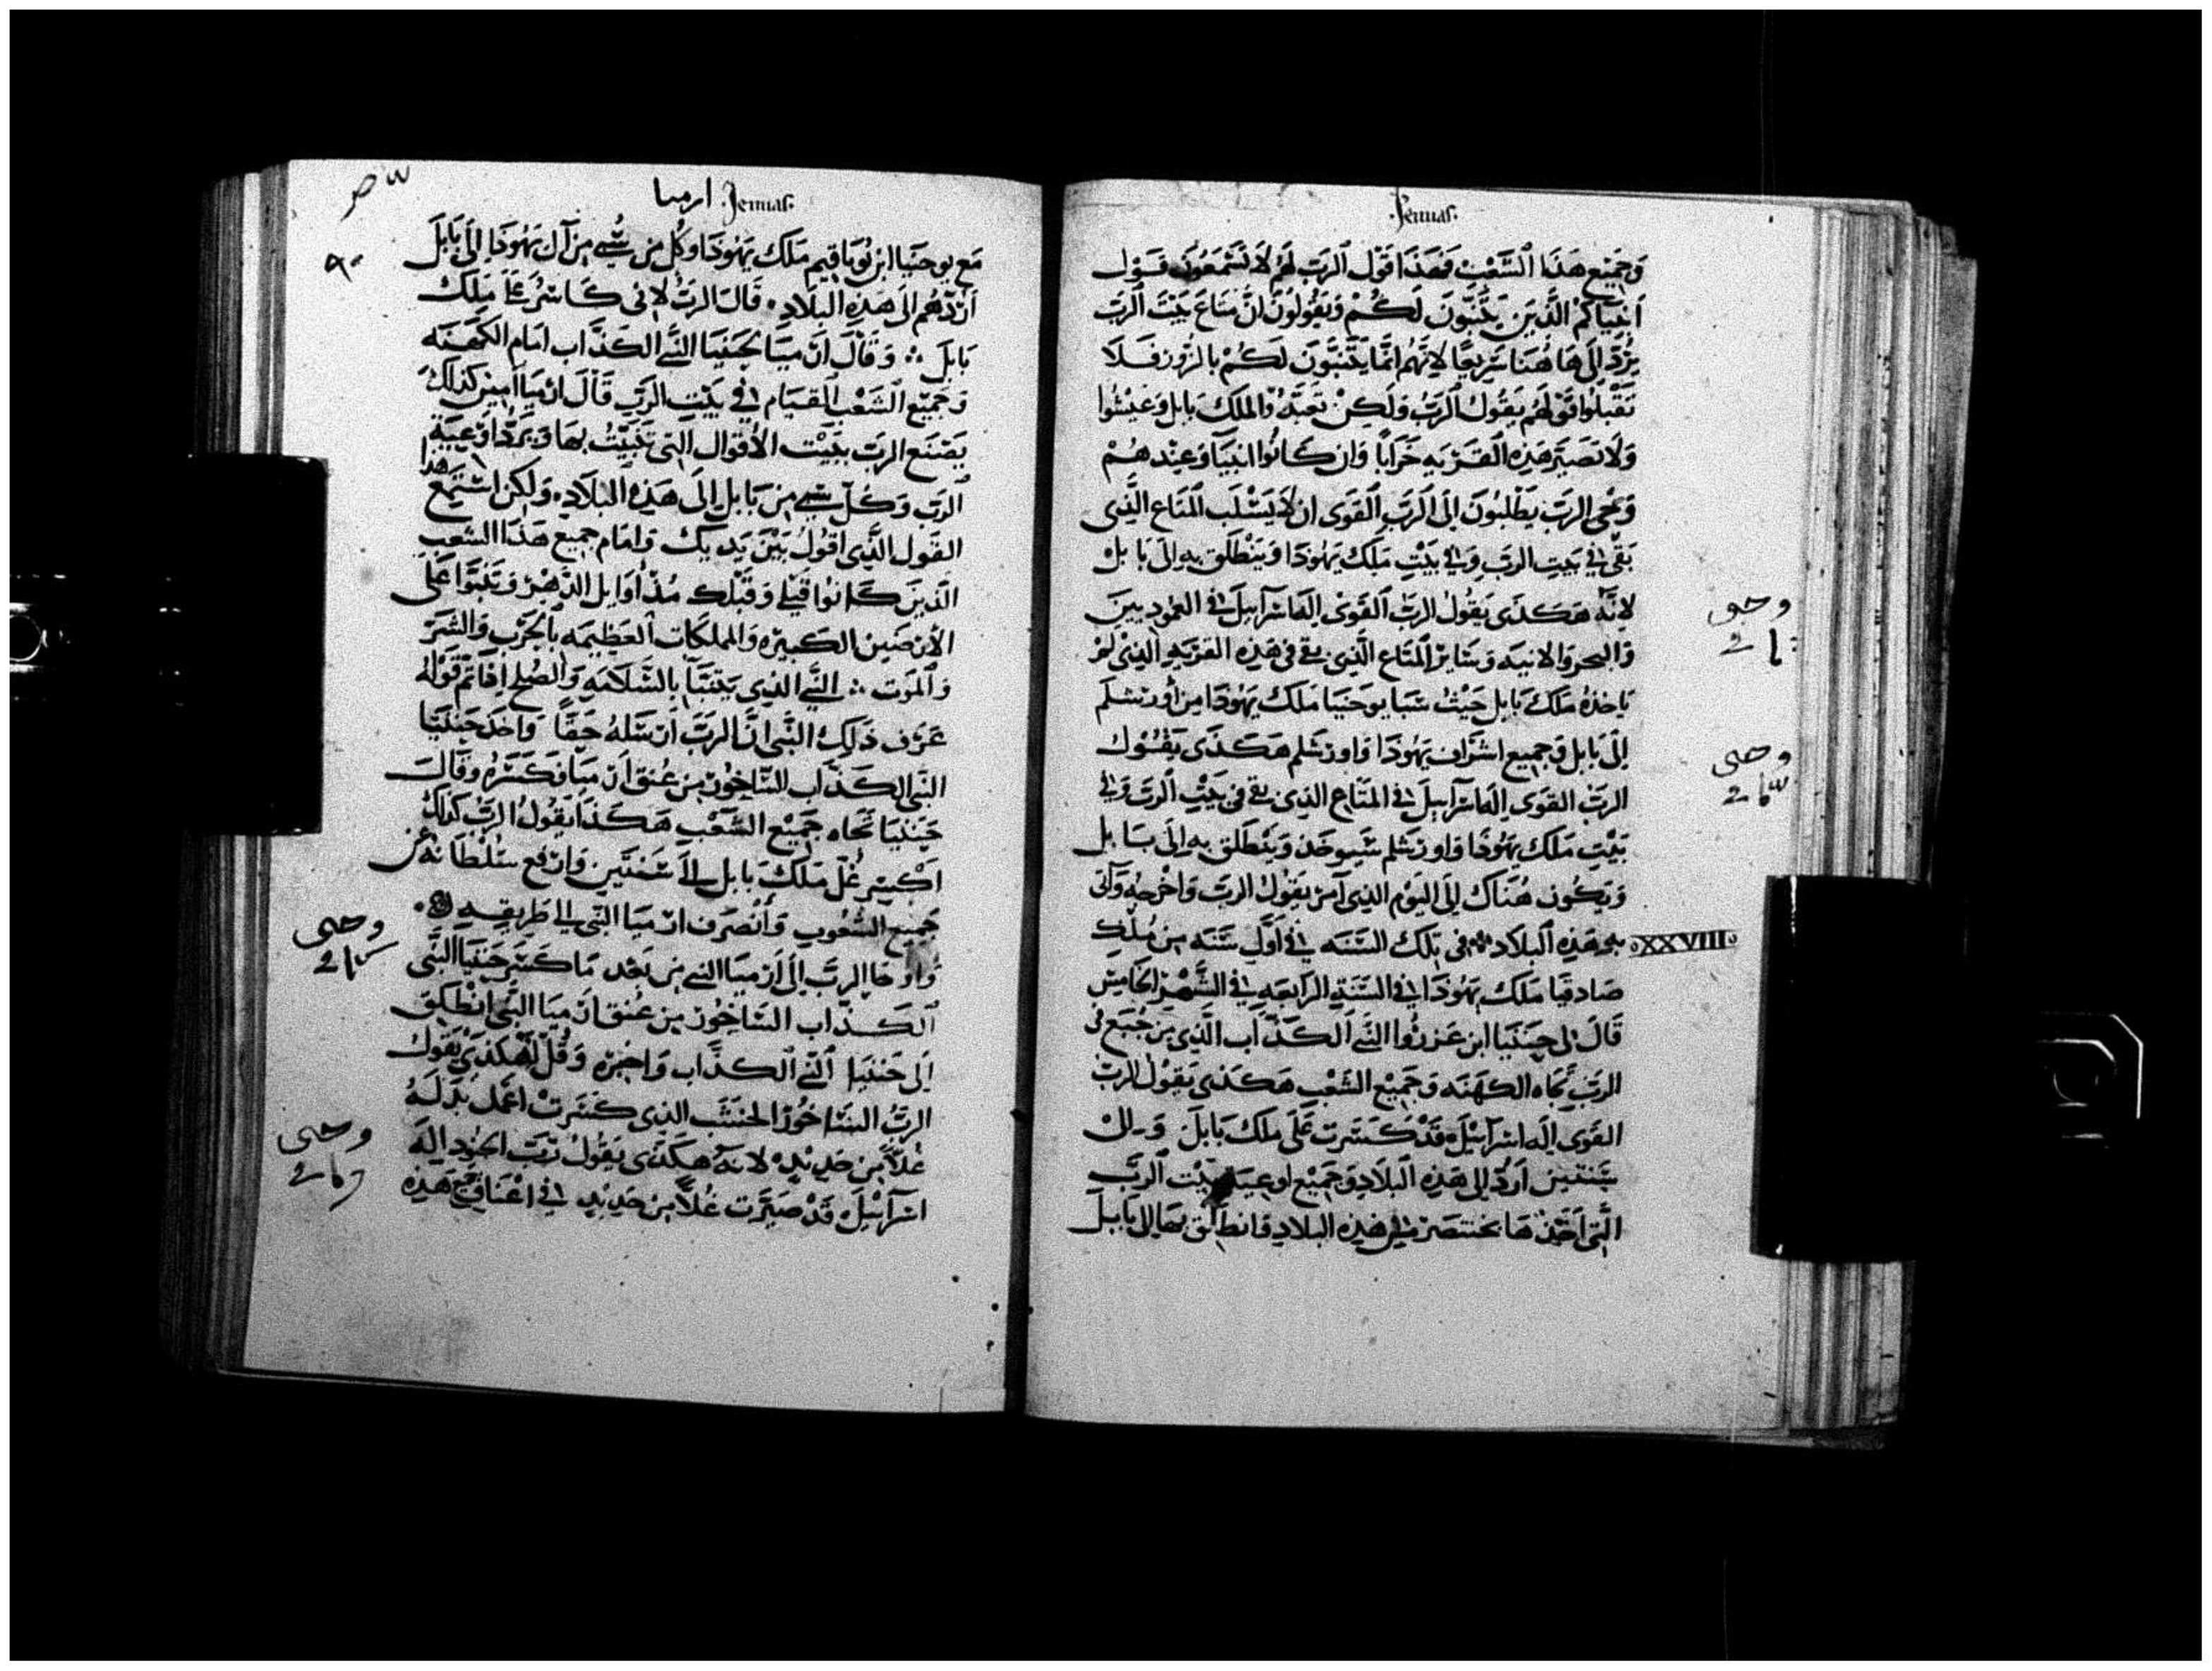 .Jeruias.
وَجَمِيْعِ هَذَا ٱلشَّعْبِ فَهَذَا قَوْل ٱلرَبّ لَهُمْ لَا تَسْمَعُوُن قَوْل
اَنبيَاكُمْ الَّذِين يَتَنَبّون لَكُمْ وَيَقُولُونَ اِنَّ مَتَاعَ بَيْتَ ٱلرَبّ
يُرَدّ اِلَى هَا هُنَا سَرِيعًا لِانَّهُم اِنَّمَا يَتَنَبَّونَ لَكُمْ بالزُور فَلَا
تَقْبَلُوا قَوْلَهُم يَقُولُ ٱلرَبّ وَلَكِنْ تَعَبَّدُوا لملك بابل وَعيْشُوا
وَلَا تَصيَر هَذِه القَرْيَه خَرَابًا وَان كَانُوا انبيَا وَعِنْدهُمْ
وَحْى الرَبّ يَطْلبُونَ اِلَى الرَبّ القَوى ان لَا يَسْلَب المتَاع الَّذِى
بَقى فى بَيتِ الرَبّ وَفى بَيْتِ مَلك يَهُودَا وَيَنْطَلق بهِ الى بَابل
لانَّه هَكَذَى يَقُولُ الربّ القَوىْ اِلَه اسرَاييلَ فى العَمُودِيينَ
وَالبحر وَالانيه وَسَايرُ المتَاع الَّذى بقى فى هَذِه القَرْيَهِ الذِى لَمْ
يَاخذهُ مَلكَ بَابل حَيْثُ سَبَا يوحَنيَا مَلكَ يَهُودَا مِن أُورَشلَم
اِلَى بَابل وَجميع اشرَاف يَهُودَا وَاورشَلم هَكَذَى يَقُوْل
الربّ القَوى اِلَه اسرَاييلَ فى المتَاعِ الذِى بقى فى بَيْتِ الربّ وَفى
بَيْتِ مَلك يَهُودَا وَاورشَلم سَيوخَذ وَيَنْطَلق بهِ اِلَى بَابل
وَيَكُون هُنَاك اِلَى اليَوْم الذِى آمر يَقُولُ الربّ وَاخْرجُه وَآتى
بهِ هَذِه البلَاد فى تِلكَ السَنَه فى أَوّل سَنَه مِن مُلْكِ
صَادقيَا مَلك يَهُودَا فى السَنَةِ الرَابعَهِ فى الشَّهْر الخَامِس
قَالَ لِى حَنَنيَا ابن عَزروُا النَبى الكَذّاب الَّذِى مِن جُبَع فى
الرَبّ تجَاه الكَهَنَه وَجَمِيْع الشَعْبِ هَكَذَى يَقُولُ الربّ
القَوى اِلَه اسرَاييْل قَدْ كَسَرت عَلَى مَلك بَابلَ وَالى
سَنَتين اَردُّ اِلى هَذِه البلَاد وَجَمِيْع اوعيَه بَيْت الربّ
الَّتى اَخَذَهَا بختنصرَ مِن هَذِه البلَادِ فَانطَلَق بهَا الى بَابل
وحى
وحى
XXVIII
ارميا .Jeruias.
مَع يوحَنيَا ابن يُويَاقيم مَلكَ يَهُودَا وَكُل مَن سُبى مِن آل يَهُودَا اِلَى بَابَلَ
اَرُدّهُم اِلَى هَذِهِ البِلَادِ . قَالَ الرَبُّ لانى كَاسرُ غلَ مَلكَ
بَابلَ وَقَالَ اَرْميَا لحَنَنيَا النَبى الكَذّاب امَام الكَهَنَه
وَجَمِيْع الشَعْب القيَام فى بَيْتِ الرَبّ قَالَ ارْمِيَا امِين كَذلكُ
يَصْنَع الربّ يثَبِّتْ الاَقوال الَّتى تَنَبَّيْتُ بهَا وَيَردّ اوْعيَةَ
الربّ وَكُلّ سَبى مِن بَابلَ اِلَى هَذِهِ البِلَادِ . وَلَكِن اسْتَمع هَذَا
القَول الَّذِى اقُولُ بَيْنَ يَدَيك وَامَام جميع هَذَا الشعبِ
الَّذِينَ كَانُوا قَبْلى وَقَبْلك مُذ أوَايل الدَّهْر وَتَنَبَّوا عَلَى
الاَرَضين الكَبيرَه وَالمملكَات العَظِيمَه بالحَرْبِ وَالشَرّ
وَالمَوت النَبى الذِى يَتَنَبَّا بالسَّلَامَهِ وَالصُلح اِذَا تَمّ قَوْلهُ
عَرف ذلك النَّبى انَّ الربّ ارسَلهُ حَقًّا وَاخَذ حَنَنيَا
النَبى الكَذّاب السَّاجُور مِن عُنق اَرْميَا فَكَسَرهُ وَقَالَ
حَنَنيَا تجَاه جَمِيْع الشَعْبِ هَكَذَا يَقُولُ الربّ كَذلك
اكْسِر غُلّ مَلكَ بَابل الى سَنَتَين وَارفَع سُلْطَانهُ عَن
جَميع الشُعُوبِ وَانْصَرَف ارْميَا النَبى الى طَريقهِ .
وَاوْحَا الربّ اِلَى اَرْميَا النبى مِن بَعْد مَا كَسَر حَنَنيَا النَبى
الكَذّاب السَاجُور مِن عُنق اَرْميَا النَبى انْطَلِق
اِلى حَنَنيَا النَبى الكَذّاب وَاخبرْه وَقُلْ لَه هكذى يَقُول
الربّ السَّاجُور الخَشَب الذى كَسَرتْ اعمَل بَدَلَهُ
غُلًّا مِن حَدِيد لانهُ هكَذَى يَقُولُ رَبّ الجنُودِ الهَ
اسرَاييْل قَدْ صَيَّرت غُلًّا مِن حَدِيد فى اعْنَاق جَميع هَذِه
وحى
وحى